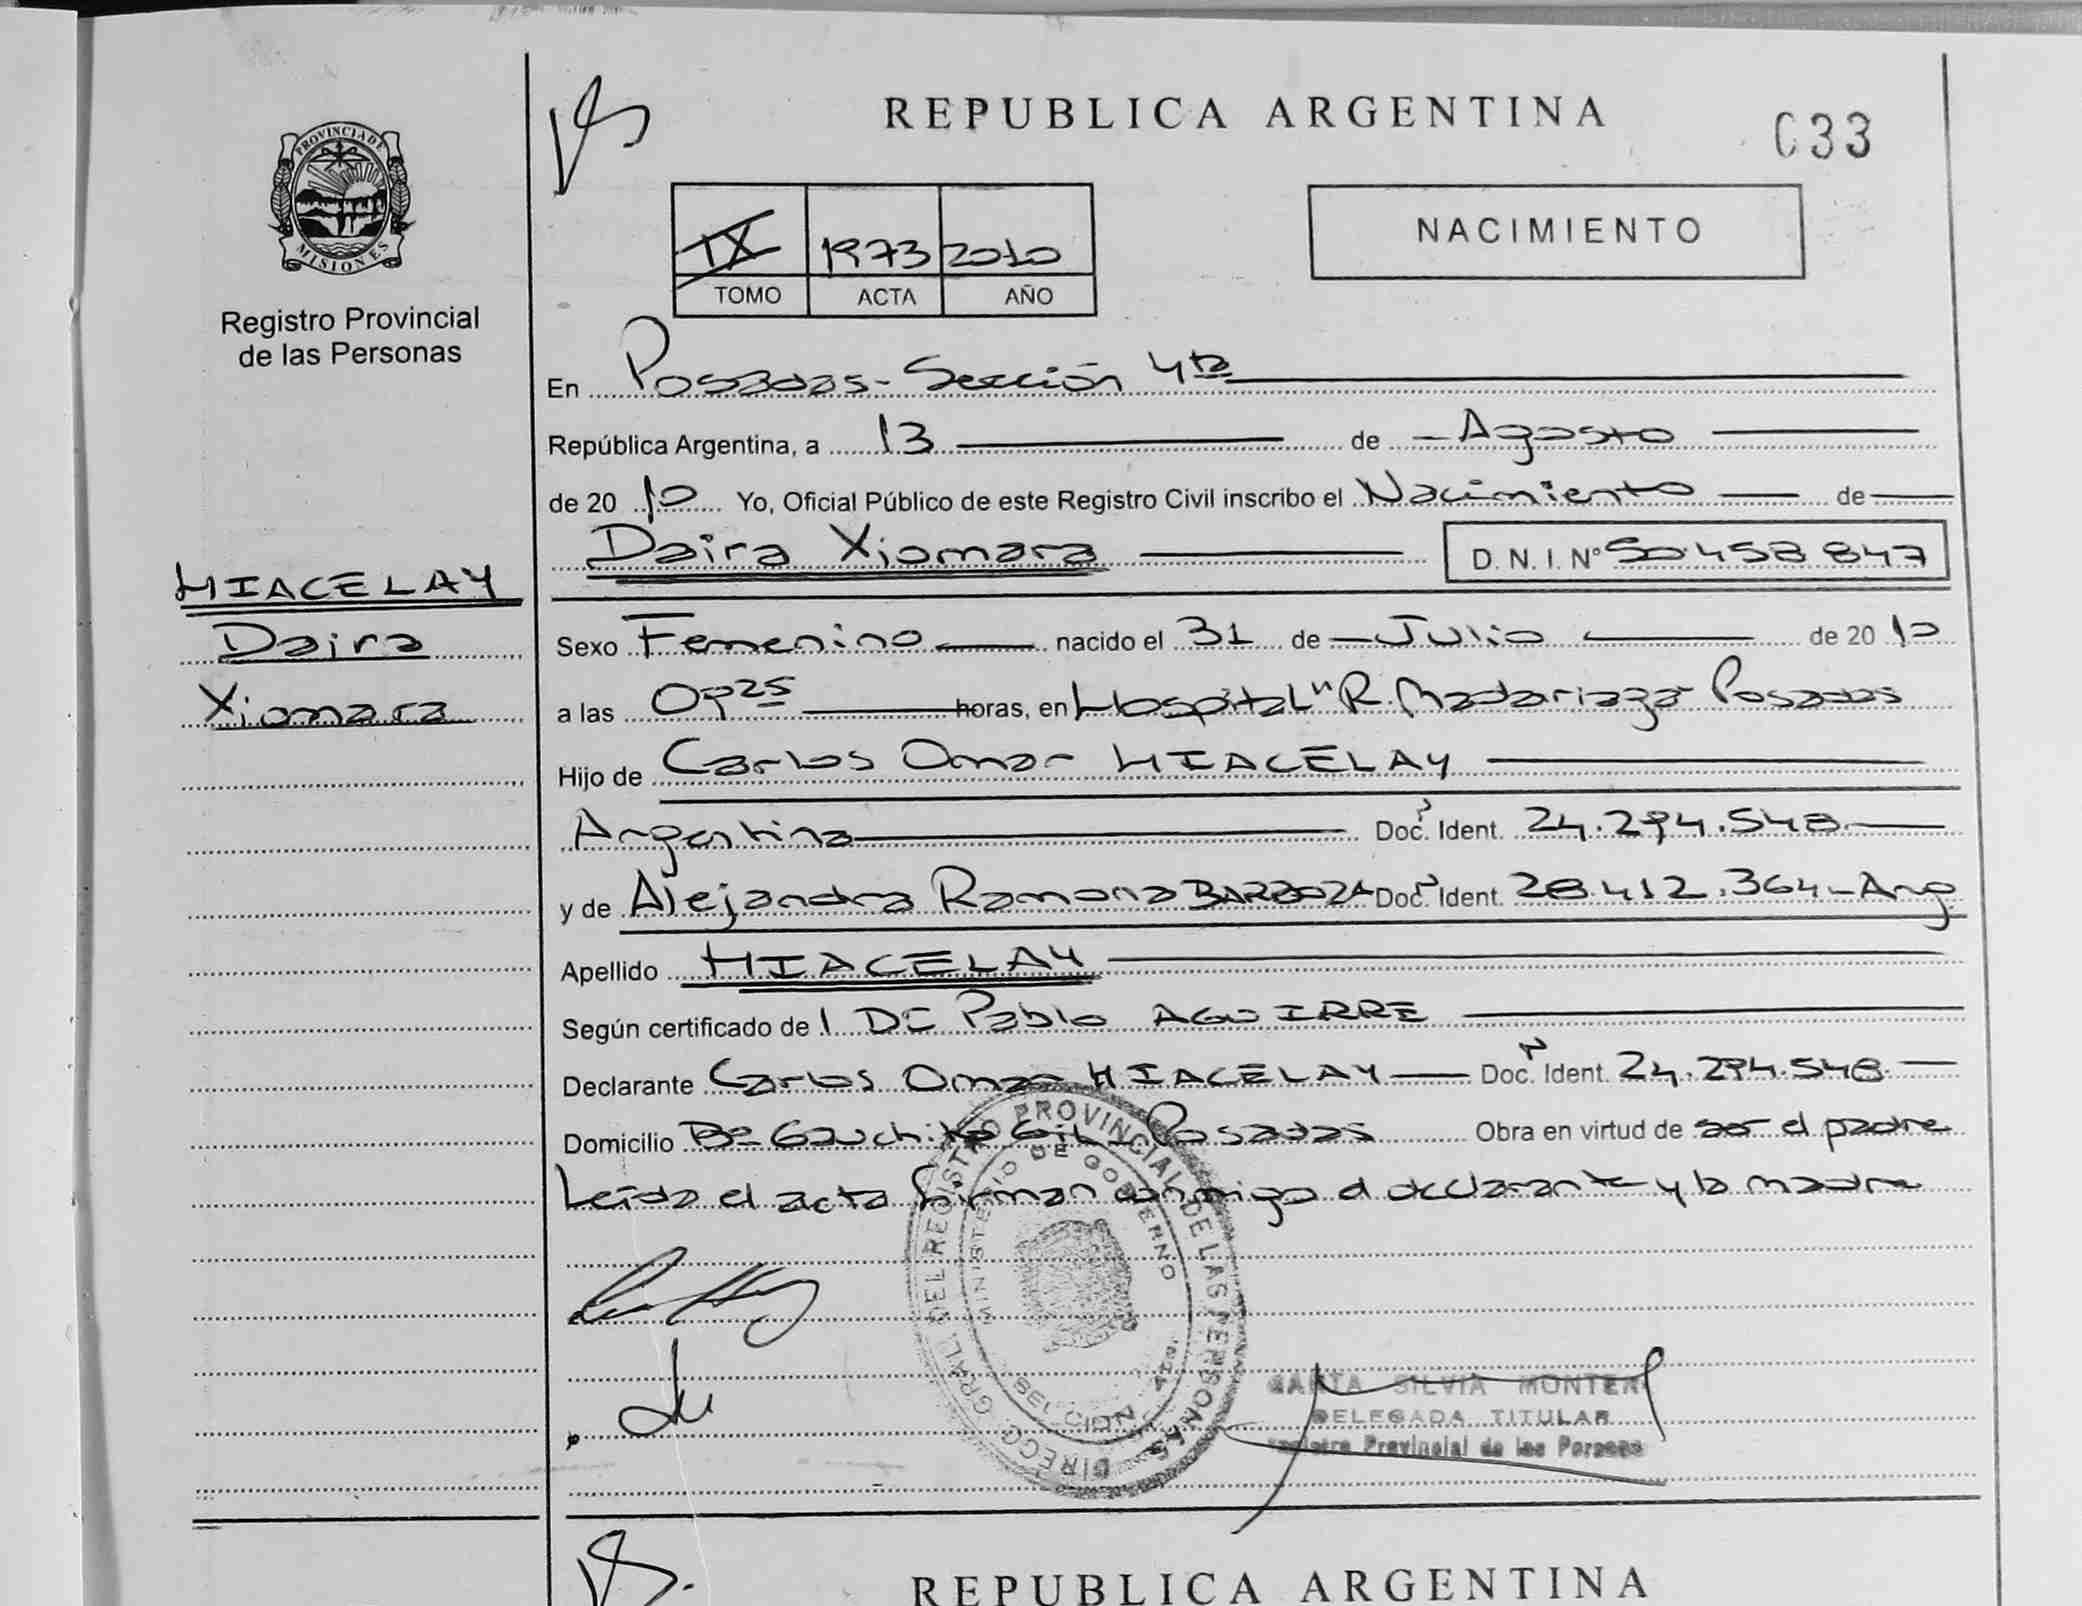 REPUBLICA ARGENTINA
033
PROVINCIA DE
MISIONES
Registro Provincial
de las Personas
IX 1973 2010
TOMO ACTA AÑO
NACIMIENTO
En Posadas - Sección 4ta
República Argentina, a 13 de Agosto
de 20 10 Yo, Oficial Público de este Registro Civil inscribo el Nacimiento de
Daira Xiomara D. N. I. Nº 50.458.847
HIACELAY
Daira
Xiomara
Sexo Femenino nacido el 31 de Julio de 20 10
a las 09 25 horas, en Hospital "R. Madariaga" Posadas
Hijo de Carlos Omar HIACELAY
Argentina Doc. Ident. 24.294.548
y de Alejandra Ramona BARBOZA Doc. Ident. 28.412.364 - Arg
Apellido HIACELAY
Según certificado de Pablo AGUIRRE
Declarante Carlos Omar HIACELAY Doc. Ident. 24.294.548
Domicilio Bº Gauchito Gil - Posadas Obra en virtud de ser el padre
Leída el acta firman conmigo el declarante y la madre
DIRECC. GRAL. DEL REGISTRO PROVINCIAL DE LAS PERSONAS
MINISTERIO DE GOBIERNO
SILVIA MONTER
DELEGADA TITULAR
Provincial de las Personas
REPUBLICA ARGENTINA